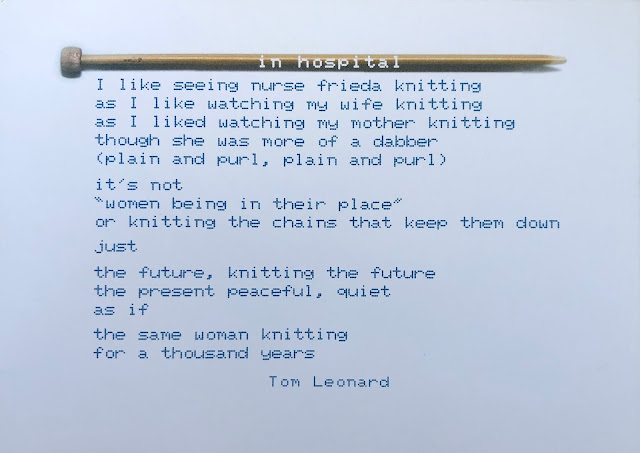 in hospital
I like seeing nurse frieda knitting
as I like watching my wife knitting
as I liked watching my mother knitting
though she was more of a dabber
(plain and purl, plain and purl)
it's not
"women being in their place"
or knitting the chains that keep them down
just
the future, knitting the future
the present peaceful, quiet
as if
the same woman knitting
for a thousand years
Tom Leonard